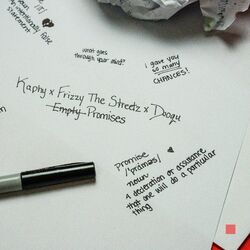 /ˈlī/
noun
intentionally false
statement
what goes
through your mind?
i gave you
so many
CHANCES!
Kaphy x Frizzy The Streetz x Doogy
Empty Promises
Promise
/ˈpräməs/
noun
a decleration or assurance
that one will do a particular
thing